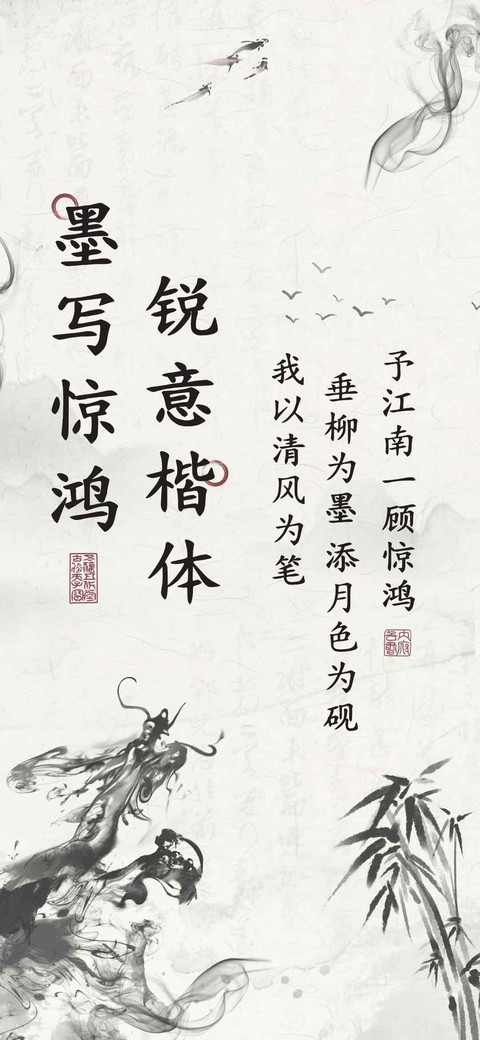 墨写惊鸿
锐意楷体
我以清风为笔
垂柳为墨 添月色为砚
予江南一顾惊鸿